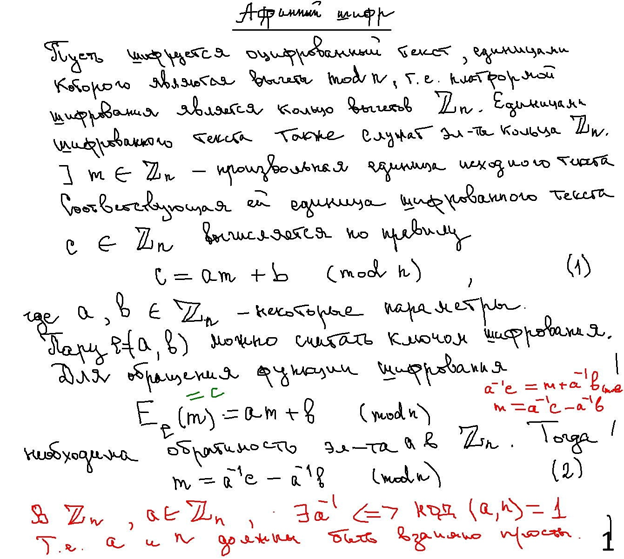 Афинный шифр
Пусть шифруется оцифрованный текст, единицами
которого являются вычеты mod n, т.е. платформой
шифрования является кольцо вычетов ℤn. Единицами
шифрованного текста также служат эл-ты кольца ℤn.
] m ∈ ℤn – произвольная единица исходного текста
Соответствующая ей единица шифрованного текста
c ∈ ℤn вычисляется по правилу
c = am + b (mod n) , (1)
где a, b ∈ ℤn – некоторые параметры.
Пару k=(a, b) можно считать ключом шифрования.
Для обращения функции шифрования
= c
a⁻¹c = m + a⁻¹b
E (m) = am + b (mod n)
m = a⁻¹c – a⁻¹b
необходима обратимость эл-та a в ℤn. Тогда
m = a⁻¹c – a⁻¹b (mod n) (2)
В ℤn, a ∈ ℤn, ∃ a⁻¹ <=> НОД (a, n) = 1
Т.е. a и n должны быть взаимно просты.
1